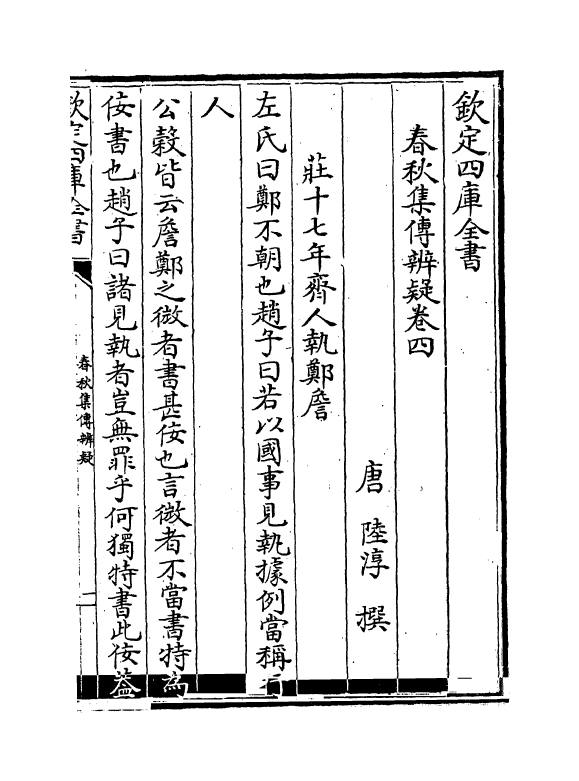 欽定四庫全書
春秋集傳辨疑卷四
唐 陸淳 撰
莊十七年齊人執鄭詹
左氏曰鄭不朝也趙子曰若以國事見執據例當稱行
人
公穀皆云詹鄭之微者書甚佞也言微者不當書特為
佞書也趙子曰諸見執者豈無罪乎何獨特書此佞蓋
欽定四庫全書
春秋集傳辨疑
一